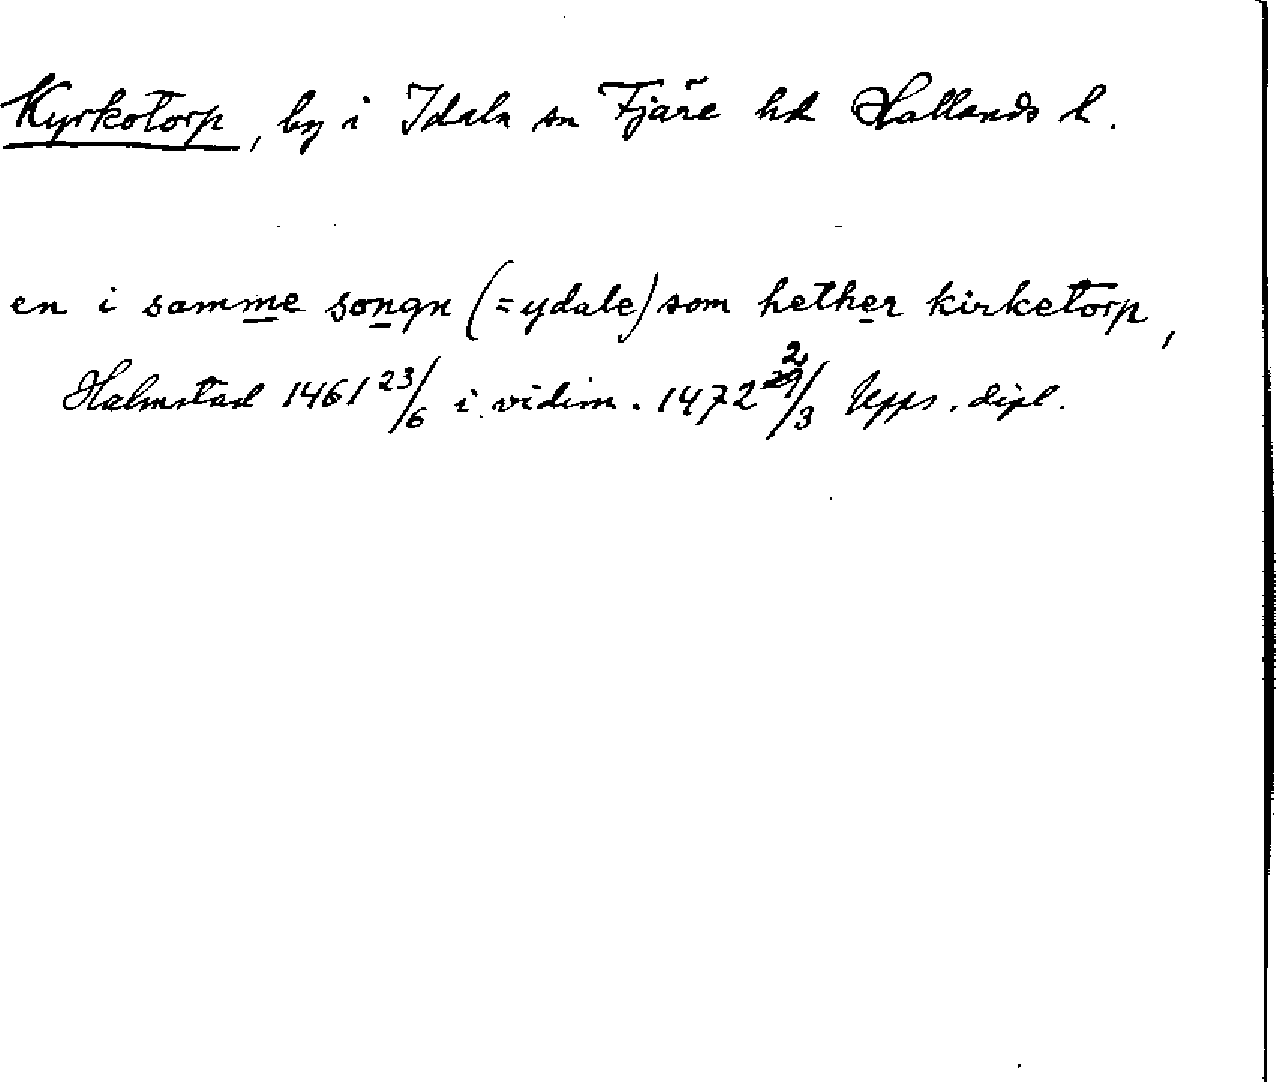 Kyrkotorp, by i Idala sn Fjäre hd Hallands l.
en i samme songn (= ydale) som hether kirketorp,
Halmstad 1461 23/6 i vidim. 1472 2/3 Upps. dipl.